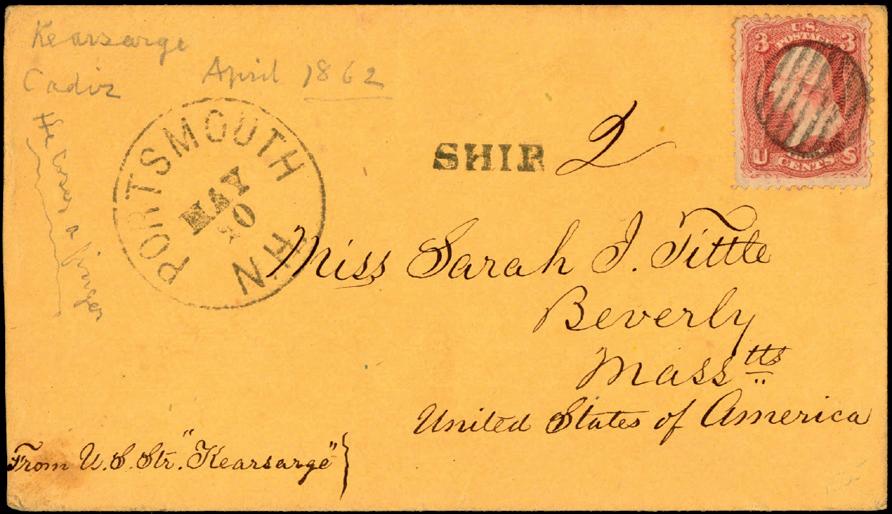 Kearsarge
Cadiz April 1862
He was a finger
PORTSMOUTH
MAY
NH
SHIP 2
3 U.S. POSTAGE 3
U CENTS S
Miss Sarah J. Tittle
Beverly
Masstts
United States of America
From U.S. Str. "Kearsarge"